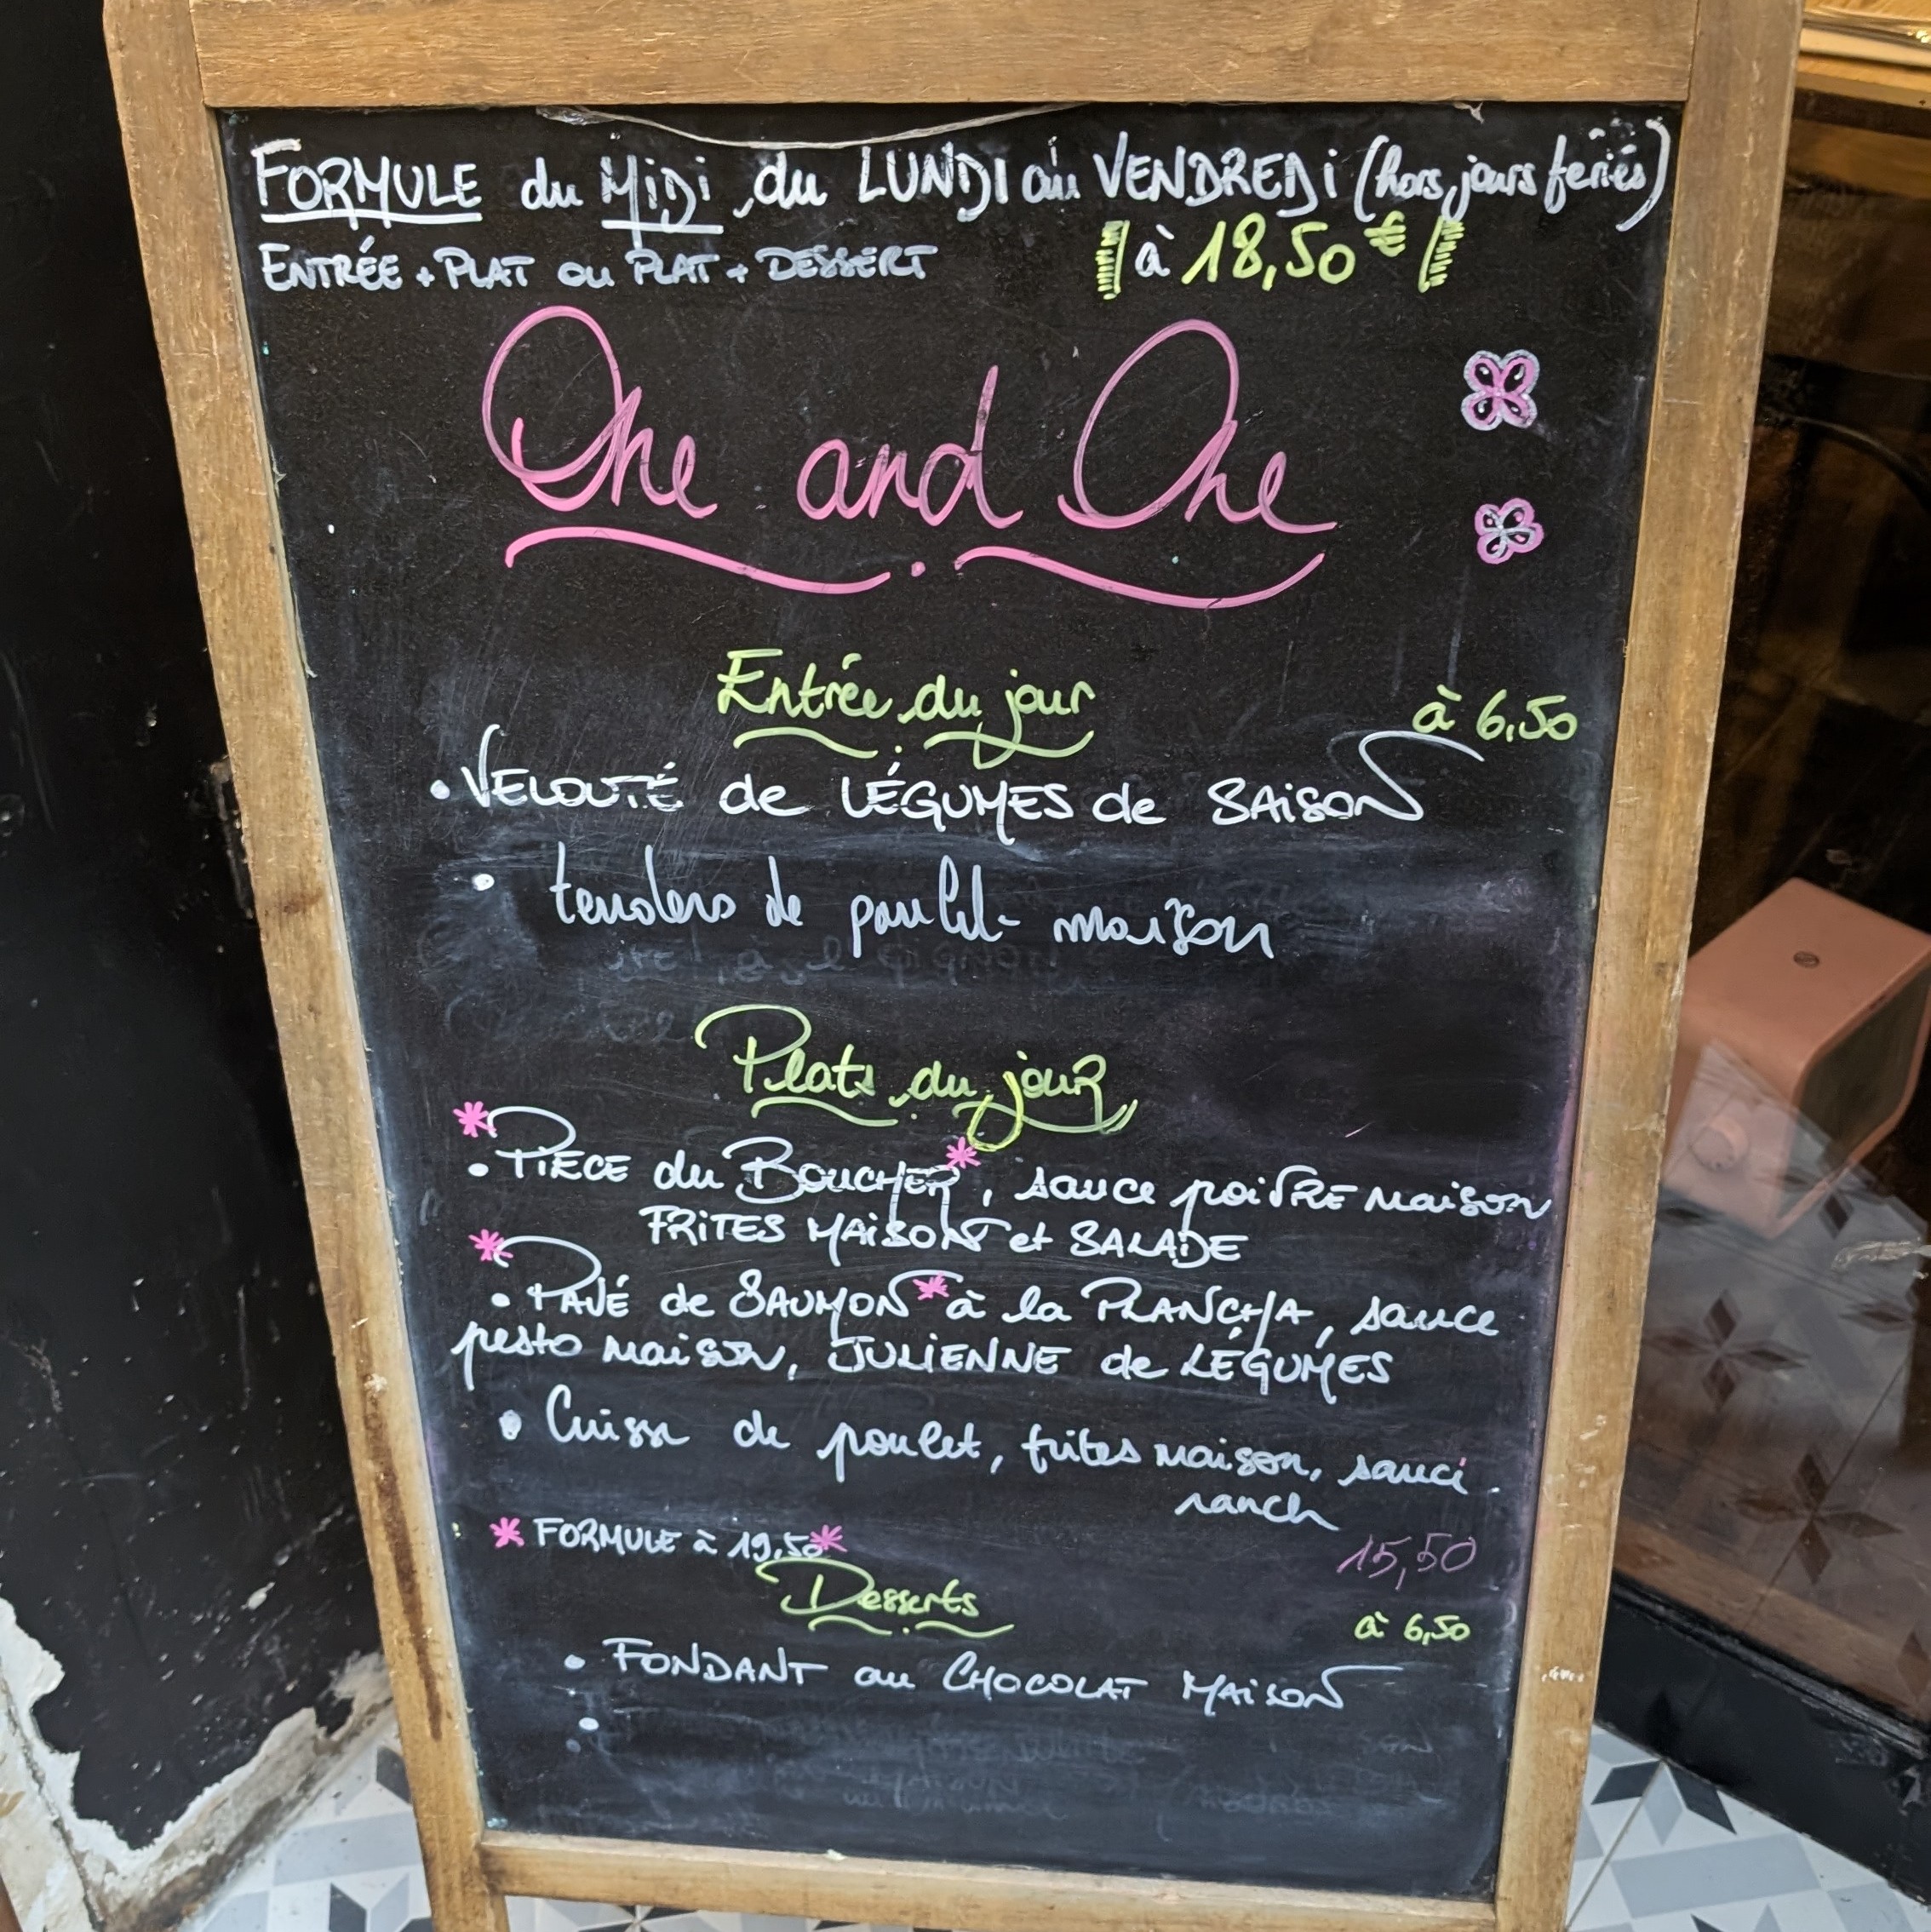 FORMULE du MiDi du LUNDI au VENDREDi (hors jours feriés)
ENTRÉE + PLAT ou PLAT + DESSERT à 18,50€
One and One
Entrée du jour à 6,50
• VELOUTÉ de LÉGUMES de SAiSON
• tenders de poulet maison
Plats du jour
* • PIÈCE du BOUCHER*, sauce poivRE maison
FRITES MAISON et SALADE
* • PAVÉ de SAUMON* à la PLANCHA, sauce
pesto maison, JULIENNE de LÉGUMES
• Cuisse de poulet, frites maison, sauce
ranch
* FORMULE à 19,50* 15,50
Desserts à 6,50
• FONDANT au CHOCOLAT MAISON
•